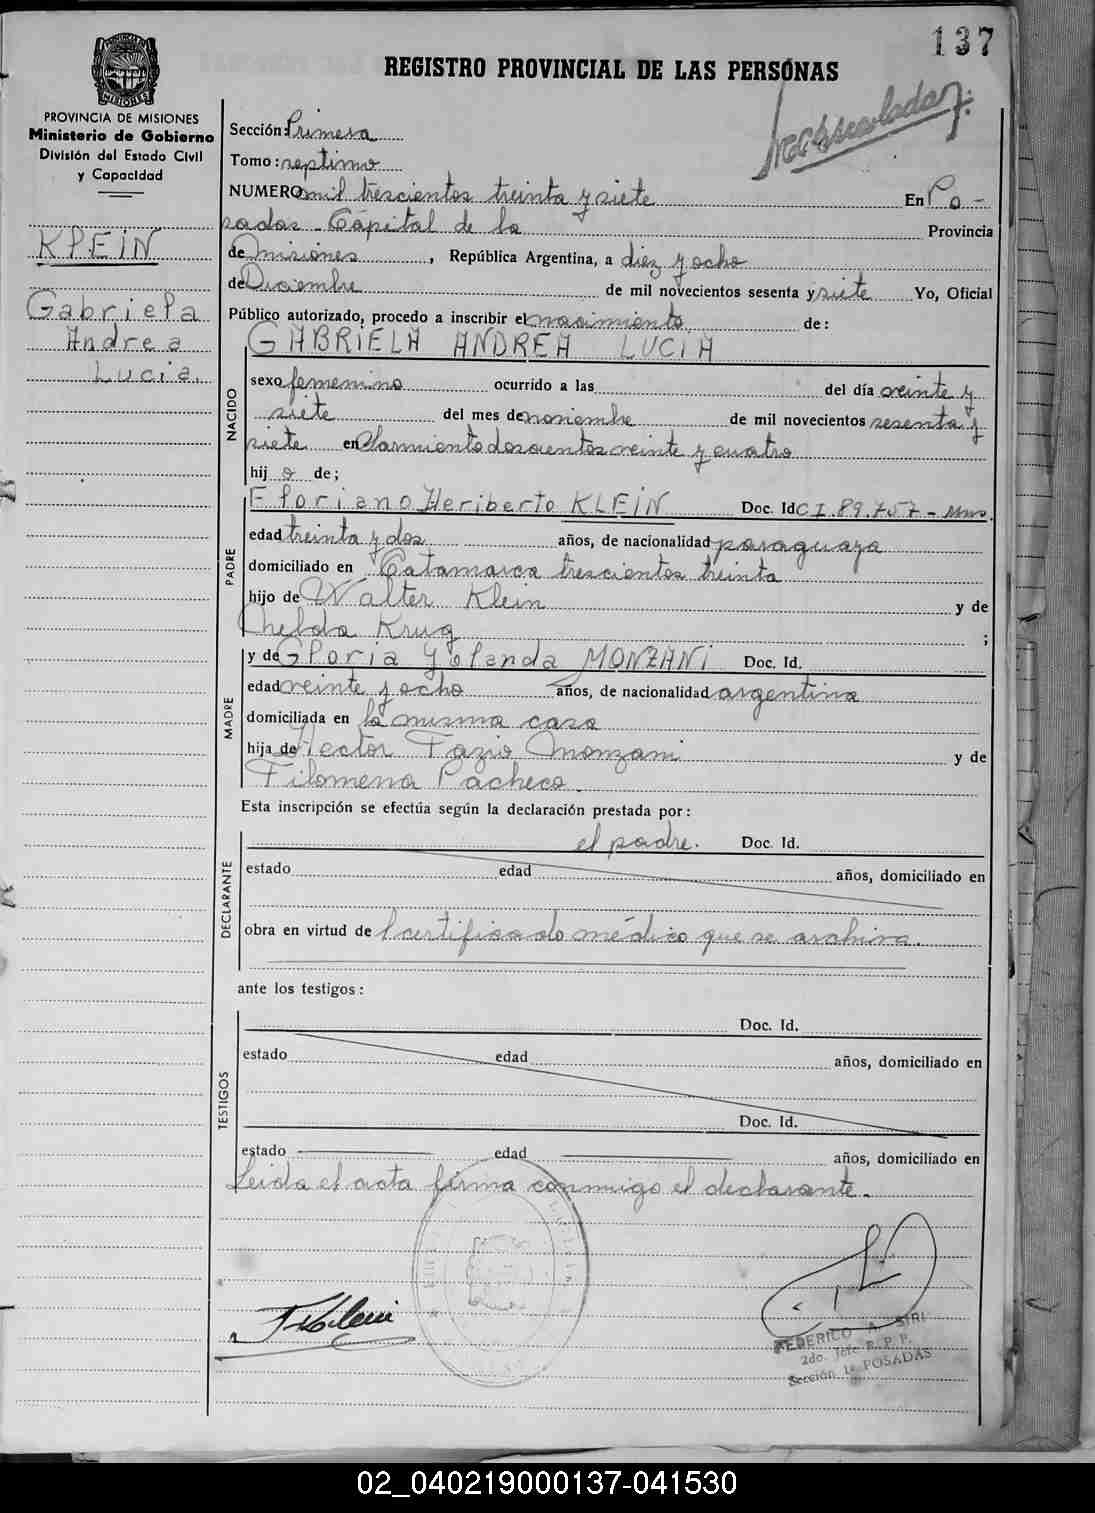 137
REGISTRO PROVINCIAL DE LAS PERSONAS
PROVINCIA DE MISIONES
Ministerio de Gobierno
División del Estado Civil
y Capacidad
KLEIN
Gabriela
Andrea
Lucia.
Sección: Primera
Tomo: septimo
NUMERO mil trescientos treinta y siete En Po-
sadas - Cápital de la Provincia
de Misiones, República Argentina, a diez y ocho
de Diciembre de mil novecientos sesenta y siete Yo, Oficial
Público autorizado, procedo a inscribir el nacimiento de:
GABRIELA ANDREA LUCIA
NACIDO
sexo femenino ocurrido a las del día veinte y
siete del mes de noviembre de mil novecientos sesenta y
siete en Sarmiento doscientos veinte y cuatro
hij a de;
PADRE
Floriano Heriberto KLEIN Doc. Id C I. 89.757 - Mns.
edad treinta y dos años, de nacionalidad paraguaya
domiciliado en Catamarca trescientos treinta
hijo de Walter Klein y de
Krug ;
MADRE
y de Gloria Yolanda MONZANI Doc. Id.
edad veinte y ocho años, de nacionalidad argentina
domiciliada en la misma casa
hija de Hector Fazio Monzani y de
Filomena Pacheco.
Esta inscripción se efectúa según la declaración prestada por:
DECLARANTE
el padre. Doc. Id.
estado edad años, domiciliado en
obra en virtud del certificado médico que se archiva.
ante los testigos:
TESTIGOS
Doc. Id.
estado edad años, domiciliado en
Doc. Id.
estado edad años, domiciliado en
Leida el acta firma conmigo el declarante.
FEDERICO A. SIRI
2do. Jefe R. P. P.
Sección 1ª POSADAS
02_040219000137-041530